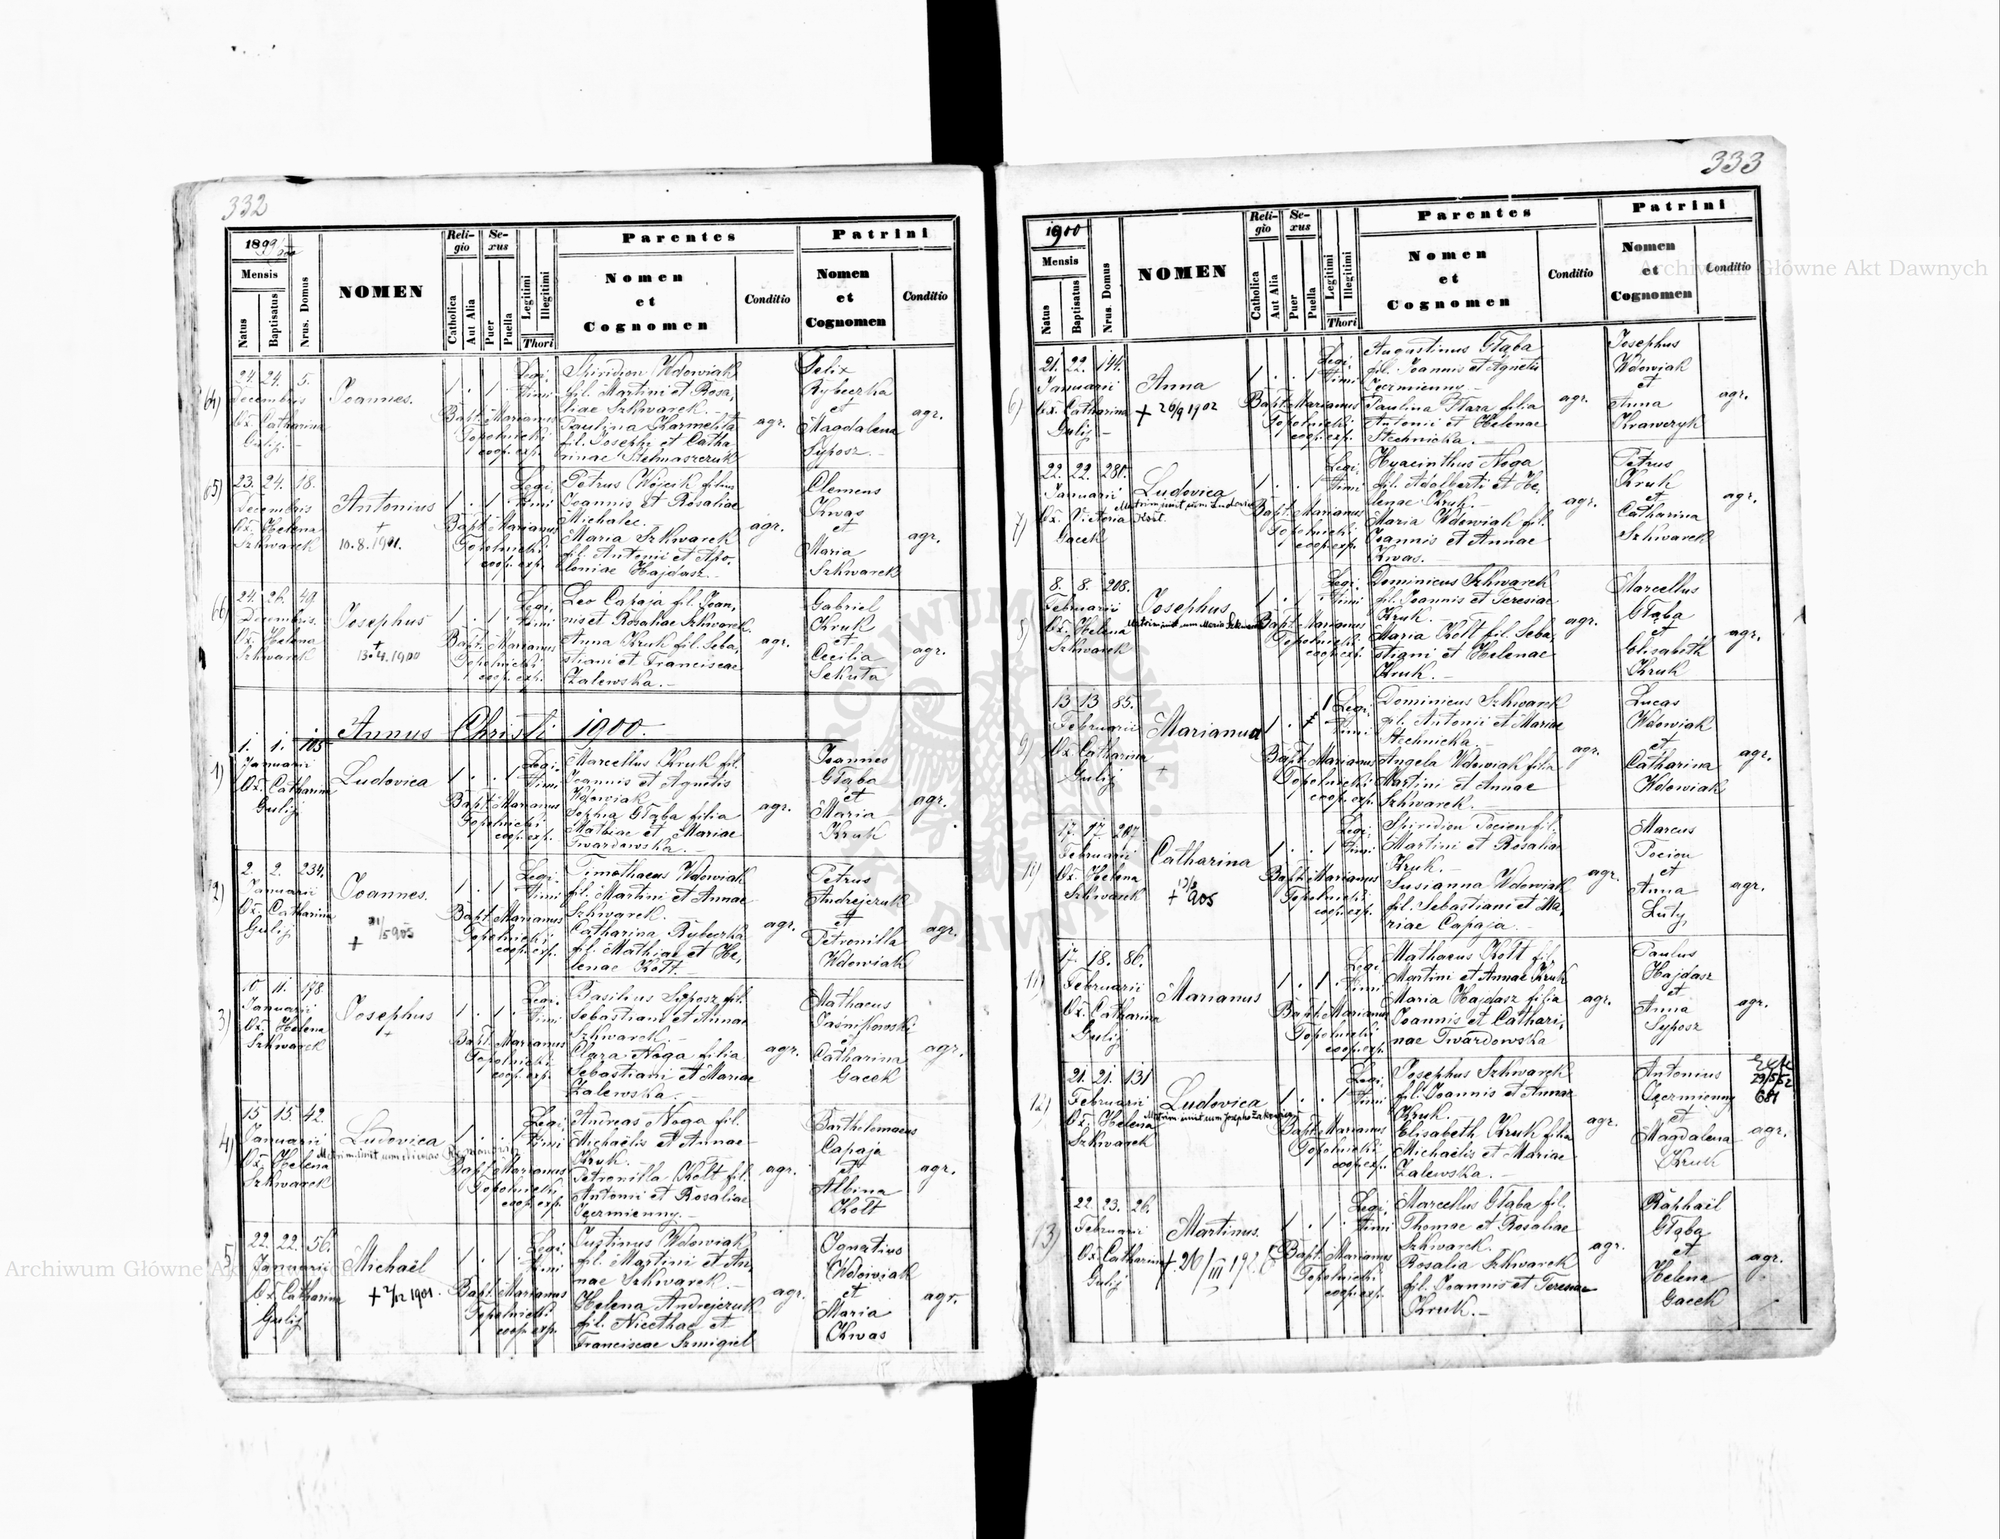 332
1899/900
Mensis
Natus
Baptisatus
Nrus. Domus
NOMEN
Religio
Catholica
Aut Alia
Sexus
Puer
Puella
Legitimi
Illegitimi
Thori
Parentes
Nomen
et
Cognomen
Conditio
Patrini
Nomen
et
Cognomen
Conditio
64)
24. 24. 5.
Decembris
Ob. Catharina
Gulij
Joannes.
1 . 1 .
Legi-
timi
Bapt. Marianus
Topolnicki
coop. exp.
Spiridion Wdowiak
fil. Martini et Rosa-
liae Szkwarek. —
Paulina Karmelita
fil. Josephi et Catha-
rinae Szelmaszczuk
agr.
Felix
Rybeczka
et
Magdalena
Syposz. —
agr.
65)
23. 24. 18.
Decembris
Ob. Helena
Szkwarek
Antonius
+
10.8.1901.
1 . 1 .
Legi-
timi
Bapt. Marianus
Topolnicki
coop. exp.
Petrus Wójcik filius
Joannis et Rosaliae
Michalec.
Maria Szkwarek
fil. Antonii et Apo-
loniae Hajdasz. —
agr.
Clemens
Kwas
et
Maria
Szkwarek
agr.
66)
24. 26. 49.
Decembris.
Ob. Helena
Szkwarek
Josephus
+
13.4.1900
1 . 1 .
Legi-
timi
Bapt. Marianus
Topolnicki
coop. exp.
Leo Capaja fil. Joan-
nis et Rosaliae Szkwarek.
Anna Kruk fil. Seba-
stiani et Franciscae
Zalewska. —
agr.
Gabriel
Kruk
et
Cecilia
Sekuta
agr.
Annus Christi 1900.
1)
1. 1. 105
Januarii
Ob. Catharina
Gulij
Ludovica
1 . . 1
Legi-
timi
Bapt. Marianus
Topolnicki
coop. exp.
Marcellus Kruk fil.
Joannis et Agnetis
Wdowiak
Sophia Głąba filia
Mathiae et Mariae
Twardowska. —
agr.
Joannes
Głąba
et
Maria
Kruk
agr.
2)
2. 2. 234.
Januarii
Ob. Catharina
Gulij
Joannes.
+
1 . 1 .
Legi-
timi
Bapt. Marianus
Topolnicki
coop. exp.
Timothaeus Wdowiak
fil. Martini et Annae
Szkwarek. —
Catharina Rybeczka
fil. Mathiae et He-
lenae Kott —
agr.
Petrus
Andrejczuk
et
Petronilla
Wdowiak
agr.
3)
10. 11. 178
Januarii
Ob. Helena
Szkwarek
Josephus
+
1 . 1 .
Legi-
timi
Bapt. Marianus
Topolnicki
coop. exp.
Basilius Syposz fil.
Sebastiani et Annae
Szkwarek —
Clara Noga filia
Sebastiani et Mariae
Zalewska. —
agr.
Mathaeus
Jaśnikowski
et
Catharina
Gacek
agr.
4)
15. 15. 42.
Januarii
Ob. Helena
Szkwarek
Ludovica
1 . . 1
Legi-
timi
Bapt. Marianus
Topolnicki
coop. exp.
Andreas Noga fil.
Michaëlis et Annae
Kruk.
Petronilla Kott fil.
Antonii et Rosaliae
Jęczmienny. —
agr.
Bartholomaeus
Capaja
et
Albina
Kott
agr.
5)
22. 22. 56.
Januarii
Ob. Catharina
Gulij
Michaël
+ 2/12 1901.
1 . 1 .
Legi-
timi
Bapt. Marianus
Topolnicki
coop. exp.
Justinus Wdowiak
fil. Martini et An-
nae Szkwarek —
Helena Andrejczuk
fil. Nicethae et
Franciscae Szmigiel
agr.
Ignatius
Wdowiak
et
Maria
Kwas
agr.
333
1900
Mensis
Natus
Baptisatus
Nrus. Domus
NOMEN
Religio
Catholica
Aut Alia
Sexus
Puer
Puella
Legitimi
Illegitimi
Thori
Parentes
Nomen
et
Cognomen
Conditio
Patrini
Nomen
et
Cognomen
Conditio
6)
21. 22. 144.
Januarii
Ob. Catharina
Gulij —
Anna
+ 26/9 1902
1 . . 1
Legi-
timi
Bapt. Marianus
Topolnicki
coop. exp.
Augustinus Głąba
fil. Joannis et Agnetis
Jęczmienny —
Paulina Ptaza filia
Antonii et Helenae
Stechnicka. —
agr.
Josephus
Wdowiak
et
Anna
Krawczyk
agr.
7)
22. 22. 281.
Januarii
Ob. Victoria
Gacek
Ludovica
1 . . 1
Legi-
timi
Bapt. Marianus
Topolnicki
coop. exp.
Hyacinthus Noga
fil. Adalberti et He-
lenae Kruk. —
Maria Wdowiak fil.
Joannis et Annae
Kwas.
agr.
Petrus
Kruk
et
Catharina
Szkwarek
agr.
8)
8. 8. 208.
Februarii
Ob. Helena
Szkwarek
Josephus
1 . 1 .
Legi-
timi
Bapt. Marianus
Topolnicki
coop. exp.
Dominicus Szkwarek
fil. Joannis et Teresiae
Kruk. —
Maria Kott fil. Seba-
stiani et Helenae
Kruk. —
agr.
Marcellus
Głąba
et
Elisabeth
Kruk
agr.
9)
13. 13. 85.
Februarii
Ob. Catharina
Gulij
Marianna
+
Legi-
timi
Bapt. Marianus
Topolnicki
coop. exp.
Dominicus Szkwarek
fil. Antonii et Mariae
Stechnicka. —
Angela Wdowiak filia
Martini et Annae
Szkwarek. —
agr.
Lucas
Wdowiak
et
Catharina
Wdowiak
agr.
10)
17. 17. 217
Februarii
Ob. Helena
Szkwarek
Catharina
1 . . 1
Legi-
timi
Bapt. Marianus
Topolnicki
coop. exp.
Spiridion Pocion fil.
Martini et Rosaliae
Kruk. —
Susianna Wdowiak
fil. Sebastiani et Ma-
riae Capaja. —
agr.
Marcus
Pocion
et
Anna
Luty
agr.
11)
17. 18. 86.
Februarii
Ob. Catharina
Gulij
Marianus
1 . 1 .
Legi-
timi
Bapt. Marianus
Topolnicki
coop. exp.
Mathaeus Kott fil.
Martini et Annae Kruk
Maria Hajdasz filia
Joannis et Cathari-
nae Twardowska
agr.
Paulus
Hajdasz
et
Anna
Syposz
agr.
12)
21. 21. 131
Februarii
Ob. Helena
Szkwarek
Ludovica
1 . . 1
Legi-
timi
Bapt. Marianus
Topolnicki
coop. exp.
Josephus Szkwarek
fil. Joannis et Annae
Kruk. —
Elisabeth Kruk filia
Michaëlis et Mariae
Zalewska. —
agr.
Antonius
Jęczmienny
et
Magdalena
Kruk
agr.
13)
22. 23. 26.
Februarii
Ob. Catharina
Gulij
Martinus.
1 . 1 .
Legi-
timi
Bapt. Marianus
Topolnicki
coop. exp.
Marcellus Głąba fil.
Thomae et Rosaliae
Szkwarek.
Rosalia Szkwarek
fil. Joannis et Teresiae
Kruk. —
agr.
Raphaël
Głąba
et
Helena
Gacek
agr.
Archiwum Główne Akt Dawnych